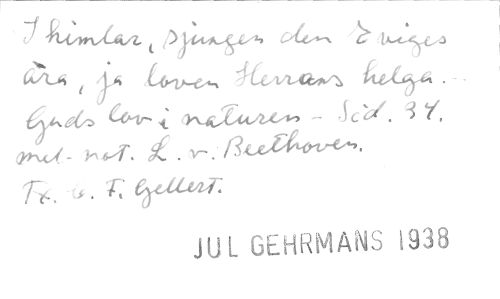 I himlar, sjungen den Eviges
ära, ja loven Herrans helga.-
Guds lov i naturen - Sid. 34.
mel- not. L. v. Beethoven.
Tx. F. Gellert.
JUL GEHRMANS 1938